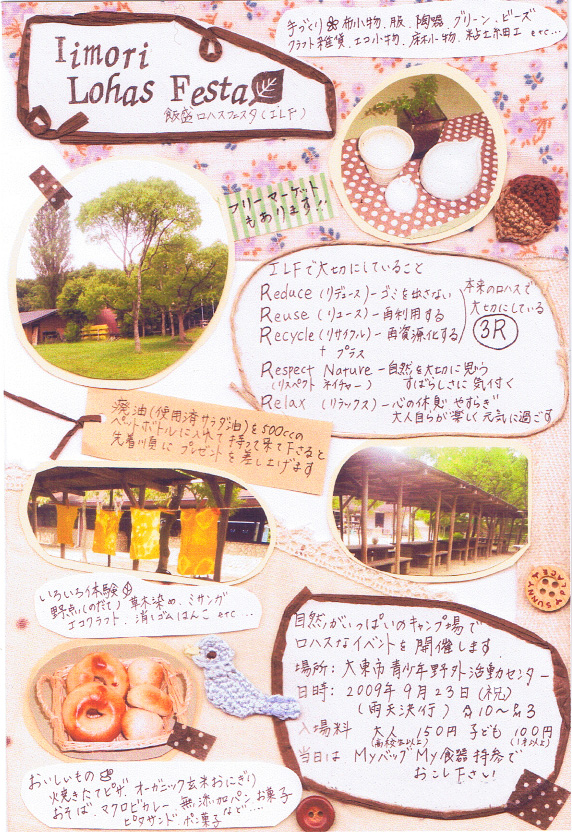 Iimori
Lohas Festa
飯盛ロハスフェスタ(ILF)
手づくり 布小物、服、陶器、グリーン、ビーズ
クラフト雑貨、エコ小物、麻小物、粘土細工 etc…
フリーマーケット
もあります!!
ILFで大切にしていること
Reduce (リデュース)ーゴミを出さない
Reuse (リユース)ー再利用する
Recycle (リサイクル)ー再資源化する
本来のロハスで
大切にしている
3R
+ プラス
Respect Nature ー自然を大切に思う
(リスペクト ネイチャー) すばらしさに気付く
Relax (リラックス)ー心の休息 やすらぎ
大人自らが楽しく元気に過ごす
廃油(使用済サラダ油)を500ccの
ペットボトルに入れて持って来て下さると
先着順にプレゼントを差し上げます
いろいろ体験
野点(のだて)草木染め、ミサンガ
エコクラフト、消しゴムはんこ etc…
自然がいっぱいのキャンプ場で
ロハスなイベントを開催します
場所:大東市青少年野外活動センター
日時:2009年9月23日(祝)
(雨天決行) AM10〜PM3
入場料 大人150円 子ども100円
(高校生以上) (1才以上)
当日は MyバッグMy食器持参で
おこし下さい!
おいしいもの
火焼きたてピザ、オーガニック玄米おにぎり
おそば、マクロビカレー、無添加パン、お菓子
ピタサンド、ポン菓子など…